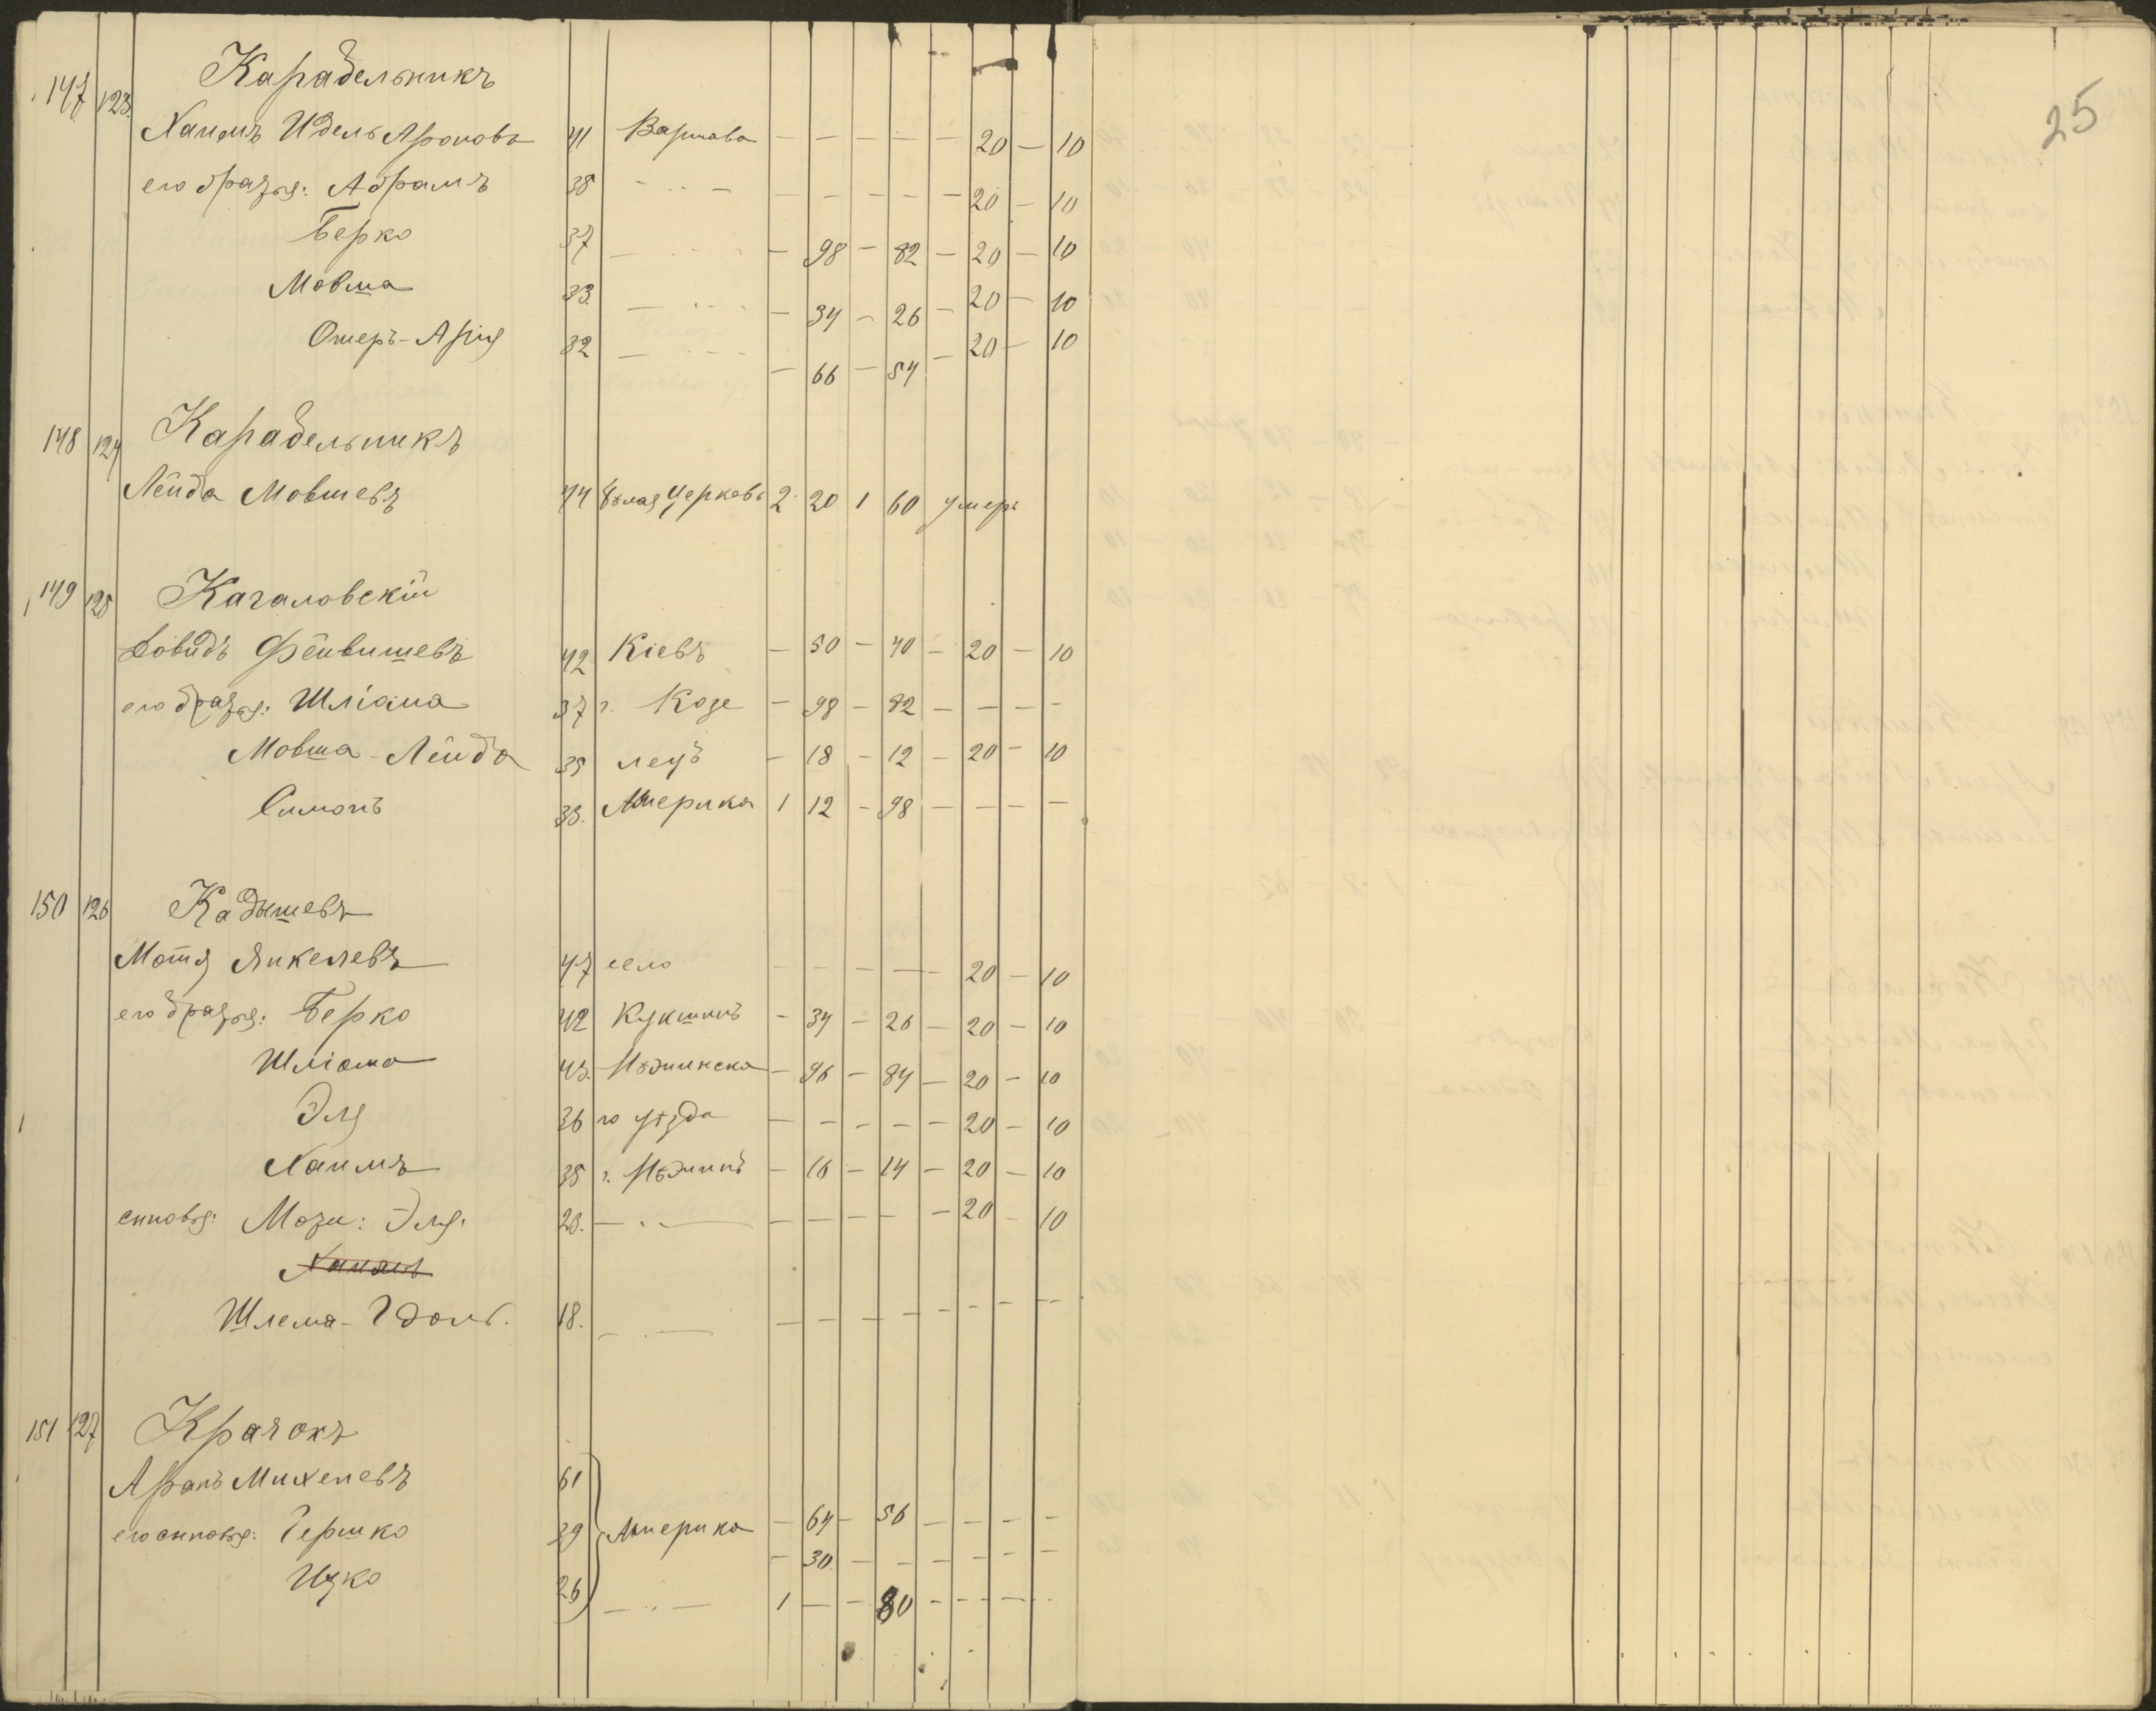 25
147 123. Карабельникъ
Хаимъ Идель Ароновъ 41 Варшава — — — — — 20 — 10
его братья: Абрамъ 38 — „ — — — — — — 20 — 10
Берко 37 — „ — — 98 — 82 — 20 — 10
Мовша 33. — „ — — 34 — 26 — 20 — 10
Ошеръ-Арія 32 — „ — — 66 — 54 — 20 — 10
148 124 Карабельникъ
Лейба Мовшевъ 44 Бѣлая Церковь 2 20 1 60 умеръ
149 125 Качаловскій
Довидъ Фейвишевъ 42 Кіевъ — 50 — 40 — 20 — 10
его братья: Шліома 37 г. Козе — 98 — 82 — — — —
Мовша-Лейба 35 лецъ — 18 — 12 — 20 — 10
Симонъ 33. Америка 1 12 — 98 — — — —
150 126 Кадышевъ
Мотя Янкелевъ 47 село — — — — — 20 — 10
его братья: Берко 42 Кукшинъ — 34 — 26 — 20 — 10
Шліома 43. Нѣжинска — 96 — 84 — 20 — 10
Эля 36 го уѣзда — — — — — 20 — 10
Хаимъ 35 г. Нѣжинъ — 16 — 14 — 20 — 10
сыновья: Моти: Эля. 23. — „ — — — — — — 20 — 10
Хаимъ
Шлема- 18. — „ — — — — — — — — —
151 127 Крачокъ
Аронъ Михелевъ 61
его сыновья: Гершко 39 Америка — 64 — 56 — — — —
— 30 — — — — — —
Ицко 26 — „ — 1 — — 80 — — — —